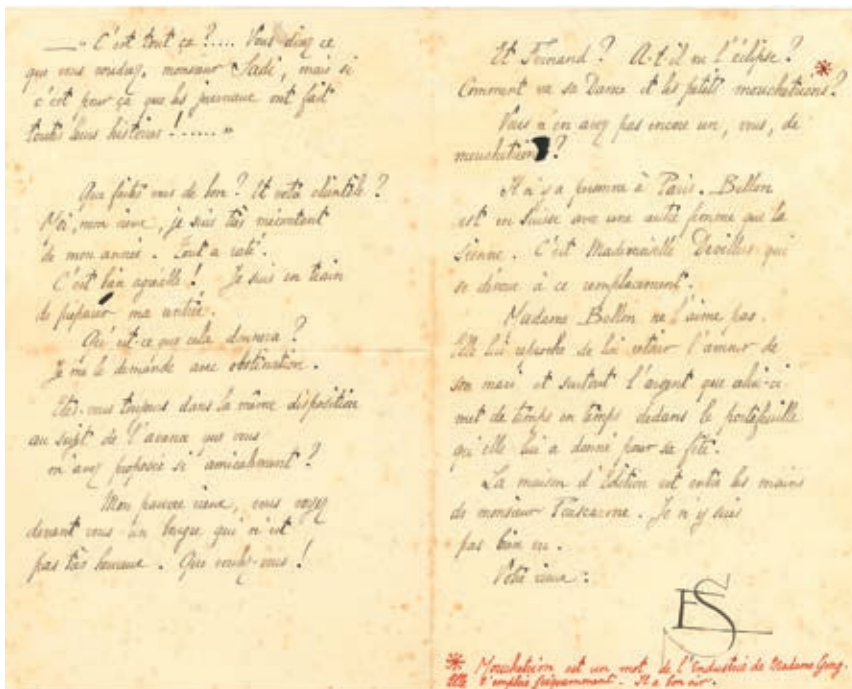 — " C'est tout ça ?.... Vous direz ce
que vous voudrez, monsieur Sadi, mais si
c'est pour ça que les journaux ont fait
toutes leurs histoires !..... »
Que faites-vous de bon ? Et votre clientèle ?
Moi, mon vieux, je suis très mécontent
de mon année. Tout a raté.
C'est bien agréable ! Je suis en train
de préparer ma rentrée.
Qu'est-ce que cela donnera ?
Je me le demande avec obstination.
Etes-vous toujours dans la même disposition
au sujet de l'avance que vous
m'avez proposée si amicalement ?
Mon pauvre vieux, vous voyez
devant vous un bougre qui n'est
pas très heureux. Que voulez-vous !
Et Fernand ? A-t-il vu l'éclipse ?
Comment va sa Dame et les petits moucheteions ? *
Vous n'en avez pas encore un, vous, de
moucheteion ?
Il n'y a personne à Paris. Bellon
est en Suisse avec une autre femme que la
sienne. C'est Mademoiselle Devillers qui
se dévoue à ce remplacement.
Madame Bellon ne l'aime pas.
Elle lui reproche de lui retenir l'amour de
son mari et surtout l'argent que celui-ci
met de temps en temps dedans le portefeuille
qu'elle lui a donné pour sa fête.
La maison d'Edition est entre les mains
de monsieur. Je n'y suis
pas bien vu.
Votre vieux :
ES
* Moucheteion est un mot de l'Industrie de Madame Geng.
Elle l'emploie fréquemment. Il a bon air.